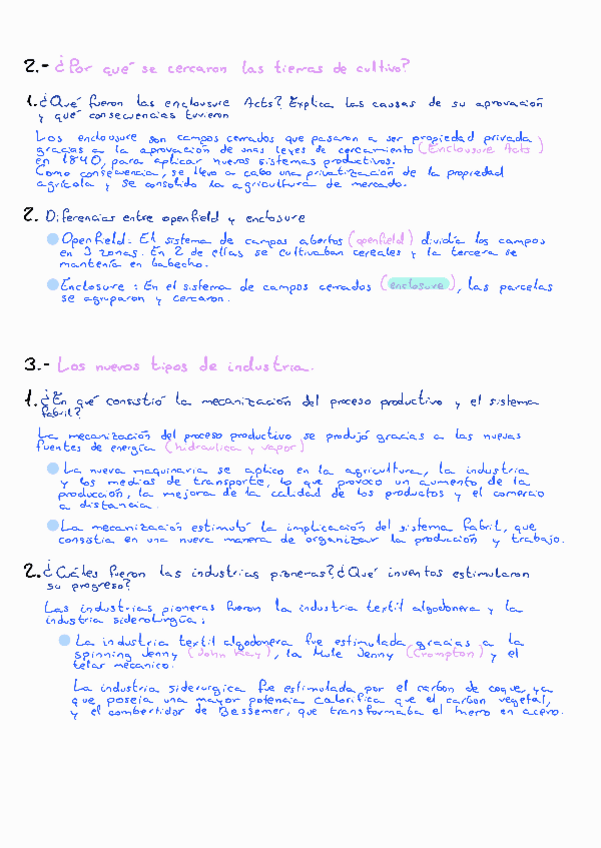 2.- ¿Por qué se cercaron las tierras de cultivo?
1. ¿Qué fueron las enclousure Acts? Explica las causas de su aprovación
y qué consecuencias tuvieron
Los enclousure son campos cerrados que pasaron a ser propiedad privada
gracias a la aprovación de unas leyes de cercamiento (Enclousure Acts )
en 1840, para aplicar nuevos sistemas productivos.
Como consequencia, se llevo a cabo una privatización de la propiedad
agrícola y se consolido la agricultura de mercado.
2. Diferencias entre openfield y enclosure
Openfield. El sistema de campos abertos (openfield) dividía los campos
en 3 zonas. En 2 de ellas se cultivaban cereales y la tercera se
mantenía en babecho.
Enclosure : En el sistema de campos cerrados (enclosure), las parcelas
se agruparon y cercaron.
3.- Los nuevos tipos de industria.
1. ¿En qué consistió la mecanización del proceso productivo y el sistema
fabril?
La mecanización del proceso productivo se produjó gracias a las nuevas
fuentes de energía (hidraulica y vapor)
La nueva maquinaria se aplico en la agricultura, la industria
y los medios de transporte, lo que provoco un aumento de la
producción, la mejora de la calidad de los productos y el comercio
a distancia.
La mecanización estimuló la implicación del sistema fabril, que
consistia en una nueva manera de organizar la producción y trabajo.
2. ¿Cuáles fueron las industrias pioneras? ¿Qué inventos estimularon
su progreso?
Las industrias pioneras fueron la industria textil algodonera y la
industria siderúrgica:
La industria textil algodonera fue estimulada gracias a la
spinning Jenny (John Kay), la Mule Jenny (Crompton) y el
telar mecanico.
La industria siderurgica fue estimulada por el carbon de coque, ya
que poseia una mayor potencia calorifica que el carbon vegetal,
y el combertidor de Bessemer, que transformaba el hierro en acero.